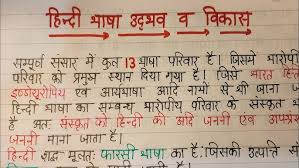 हिन्दी भाषा उद्भव व विकास
सम्पूर्ण संसार में कुल 13 भाषा परिवार है। जिसमें भारोपी
परिवार को प्रमुख स्थान दिया गया है। जिसे भारत हित्ती
इण्डोयूरोपिय एवं आर्यभाषा आदि नामों से भी जाना ज
हिन्दी भाषा का सम्बन्ध भारोपीय परिवार के संस्कृत भ
है अतः संस्कृत को हिन्दी की आदि जननी एवं अपभ्रंश
जननी माना जाता है।
हिन्दी शब्द मूलतः फारसी भाषा का है, जिसकी उत्पत्ति स